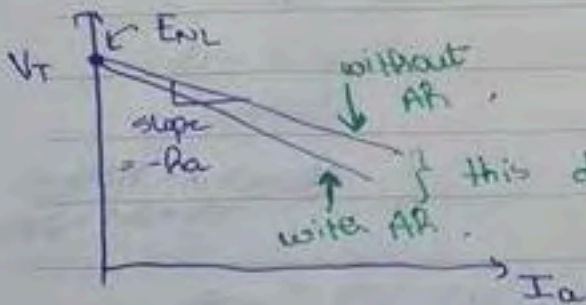 E_NL
V_T
without
AR.
slope
= -Ra
} this
with AR.
I_a